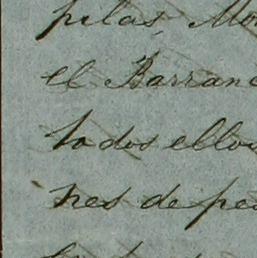 pelas, Mo
el Barranc
todos ellos
nes de pe